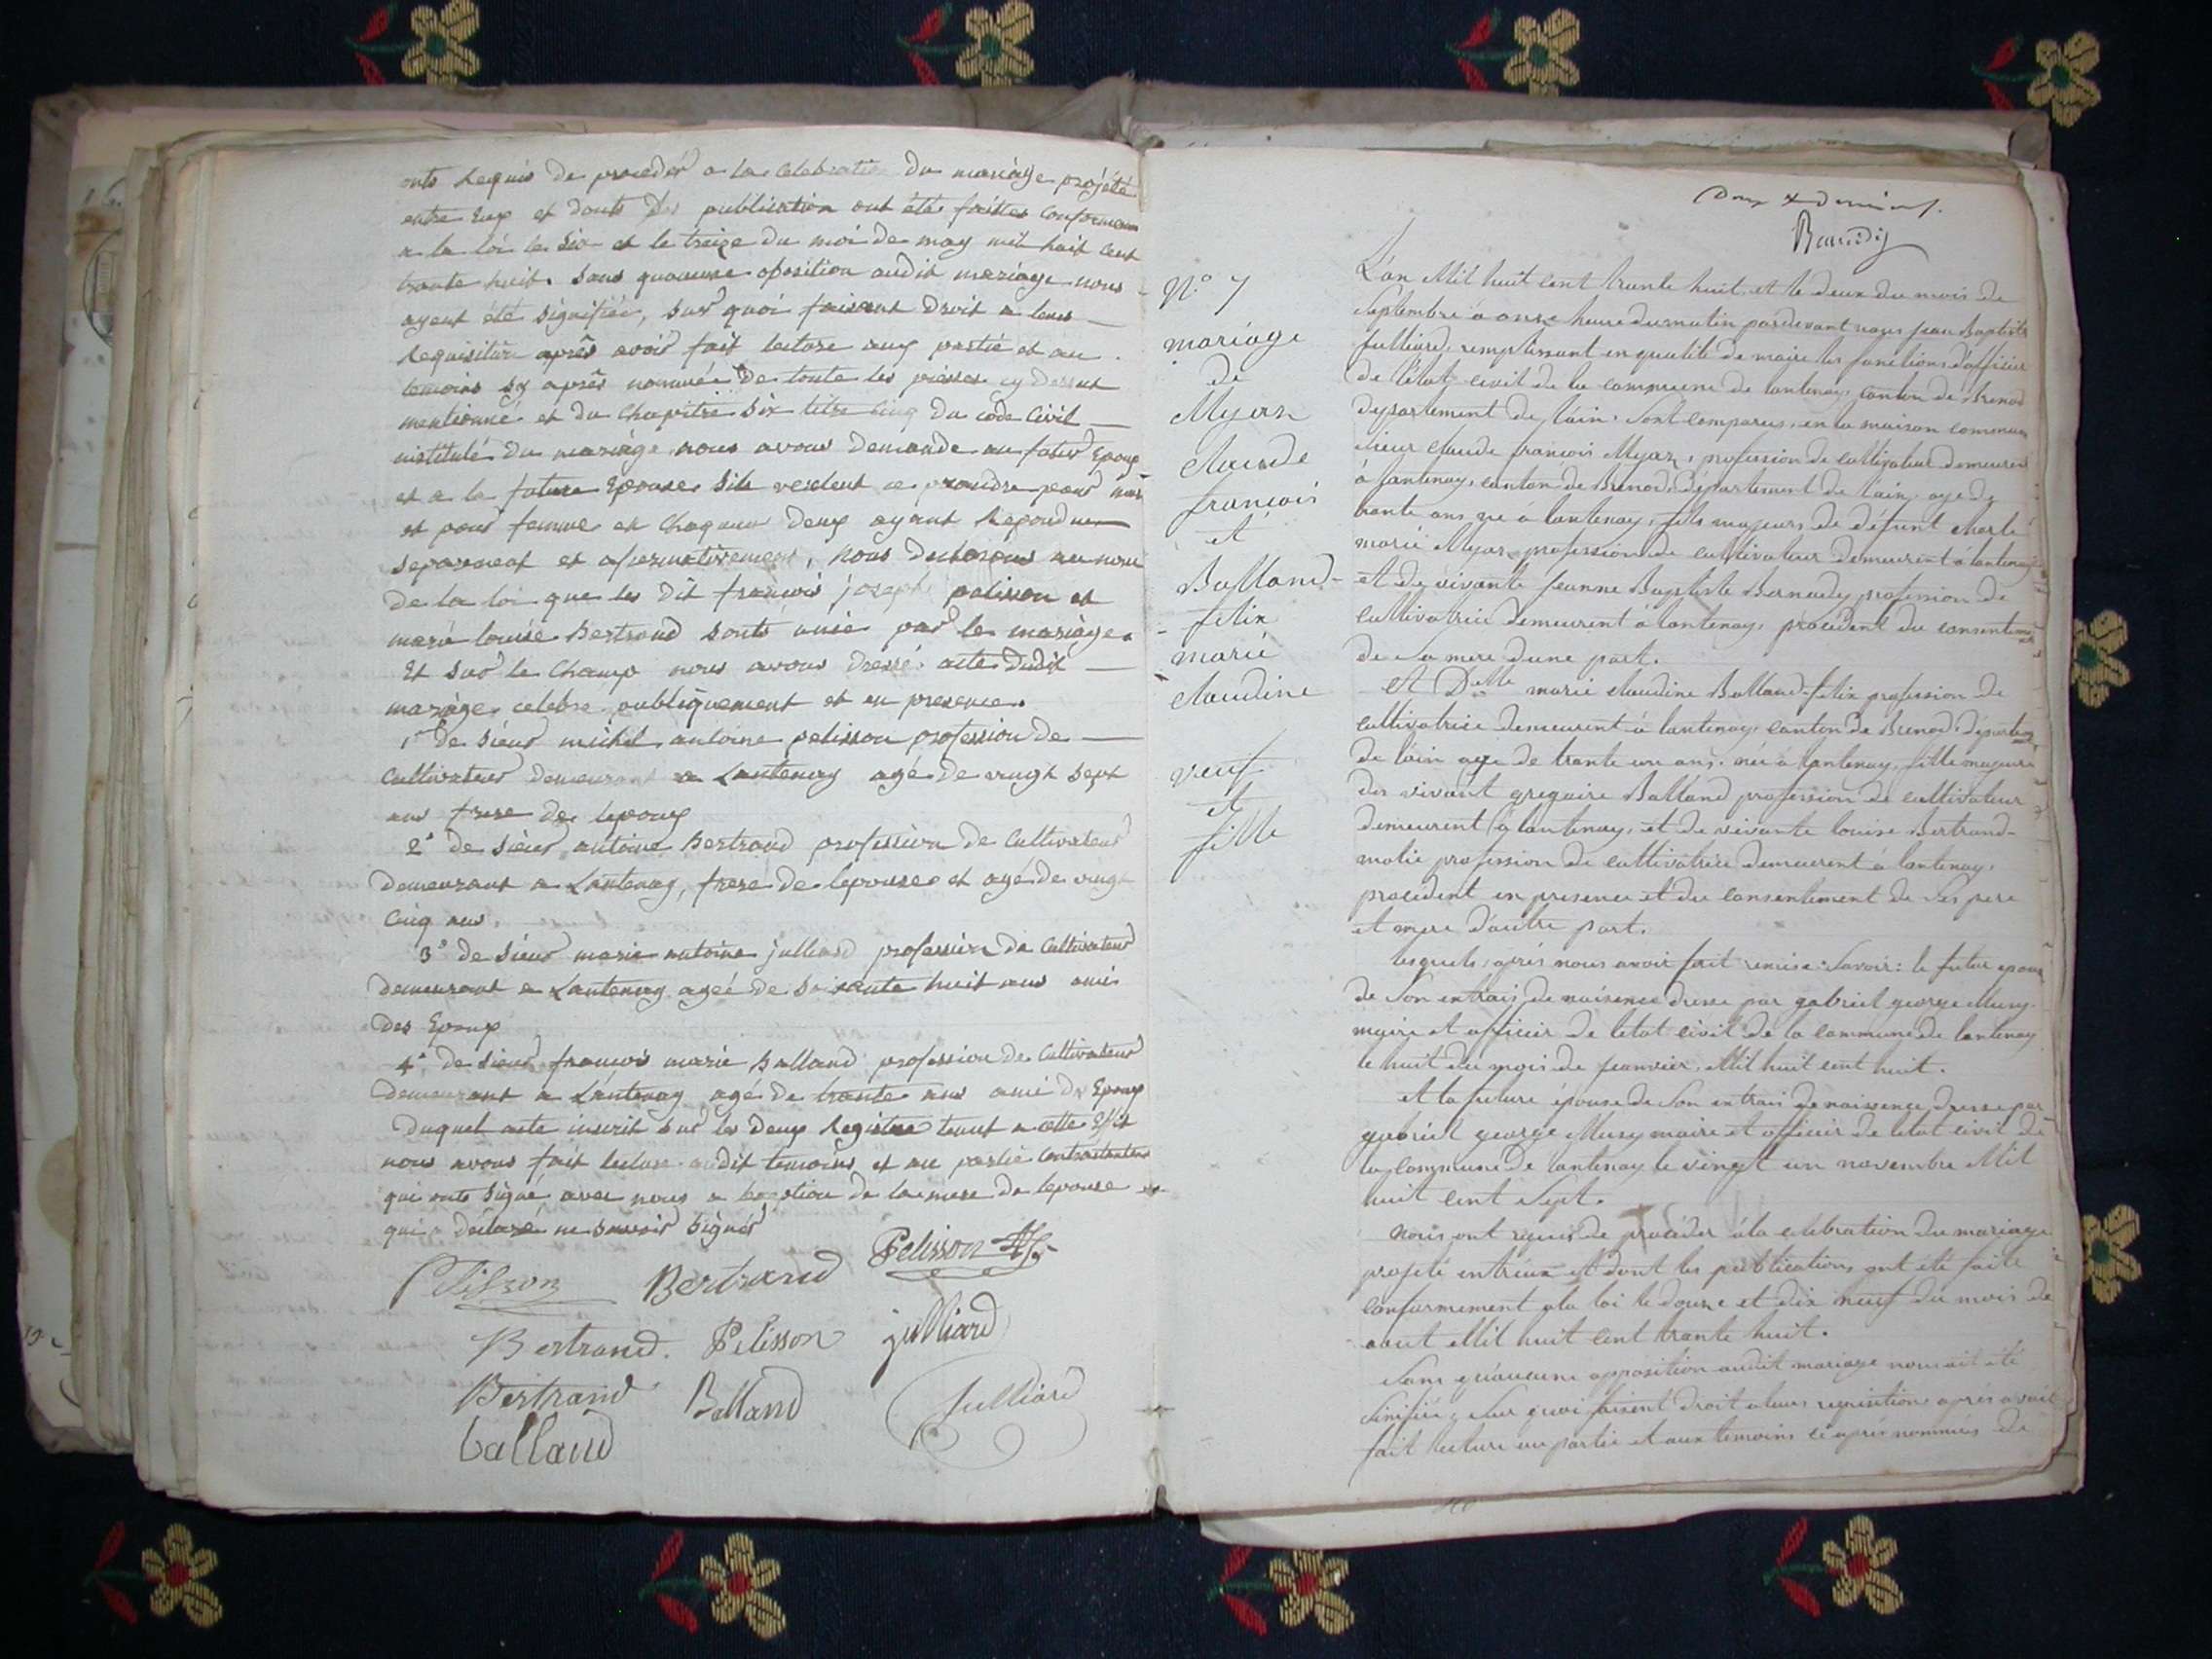 onts Requis de proceder a la Celebration du mariàge projété
entre Eux et donts Des publication ont été faittes Conformemen
a la loi le Six et le treize du moi de may mil huit Cent
trante huit. Sans quaucune oposition audit mariage nous
ayent été Signifiée, Sur quoi faisant Droit a leurs
Requisition aprês avoir fait lecture aux partié et au
temoins sy aprês nommée De toute les piésses cy dessus
mentionné et du Chapitre Six titre Cinq du code Civil
institulé Du mariàge nous avons Demande au futur Epoux
et a la future Epouse Sils veulent ce prandre pour mari
et pour femme et Chaqueun Deux ayant Repondue
Separement et afirmativement, Nous Declarons au nom
De la loi que les Dit francois joseph pelisson et
marie louise Bertrand Sonts unie par le mariàge.
Et Sur le Champ nous avons Dressé acte Dudit
mariàge celebre publiquement et en presence.
1° De Sieur michel antoine pelisson profession de
Cultivateur demeurant a Lantenay agé de vingt Sept
ans frere de lepoux
2° de Sieur antoine Bertrand profession de Cultivateur
Demeurant a Lantenay, frere de lepouse et agé de vingt
Cinq ans.
3° de Sieur marie antoine julliard profession de Cultivateur
Demeurant a Lantenay ageé de Soixante huit ans ami
Des Epoux
4° de Sieur francois marie Balland profession de Cultivateur
Demeurant a Lantenay agé de trante ans ami De Epoux
Duquel acte inscrit Sur les Deux Registre tenut a cette Effit
nous avons fait lecture audit temoins et au partié Contractantes
qui onts Signé avec nous a la de la mere de lepouse
qui a Déclaré ne Savoir Signér
Pelisson Bertrand Pelisson
Bertrand. Pelisson julliard
Bertrand Balland Julliard
balland
Deux &
N.° 7
mariage
de
Myar
claude
francois
et
Balland-
felix
marie
claudine
veuf
et
fille
L'an Mil huit cent trante huit et le deux du mois de
Septembre à onze heure du matin pardevant nous jean Baptiste
julliard, remplissant en qualité de maire les fonctions d'officier
de l'état civil de la commune de lantenay, canton de Brenod
departement de l'ain. Sont comparus, en la maison commune
Sieur claude francois Myar, profession de cultivateur demeurent
à lantenay, canton de Brenod, departement de l'ain, age de
trante ans né à lantenay, fils majeurs de défunt charle
marie Myar, profession de cultivateur demeurent à lantenay
et de vivante jeanne Baptiste profession de
cultivatrice demeurent à lantenay, procedent du consentement
de Sa mere dune part.
Et Delle marie claudine Balland-felix profession de
cultivatrice demeurent à lantenay, canton de Brenod, departem
de l'ain age de trante un ans. née à lantenay, fille majeure
des vivant gregoire Balland profession de cultivateur
demeurent à lantenay, et de vivante louise Bertrand-
profession de cultivatrice demeurent à lantenay,
procedent en presence et du consentement de Ses pere
et mere d'autre part.
lesquels, aprés nous avoir fait remise. Savoir: le futur epoux
de Son extrais de naisence dresse par gabriel george Mury
maire et officier de letat civil de la commune de lantenay
le huit du mois de jeanvier, Mil huit cent huit.
et la future épouse de Son extrais de naissence dresse par
gabriel george Mury maire et officier de letat civil de
la commune de lantenay le vingt un novembre Mil
huit cent Sept.
nous ont requis de proceder à la celebration du mariage
projeté entreux et dont les publications ont été faite
conformement ala loi le douze et dix neuf du mois de
aout Mil huit cent trante huit.
Sans qu'aucune opposition audit mariage nous ait été
Sinifiée, Sur quoi faisent droit a leurs requisition aprés avoir
fait lecture au partie et aux temoins ci aprés nommiés de